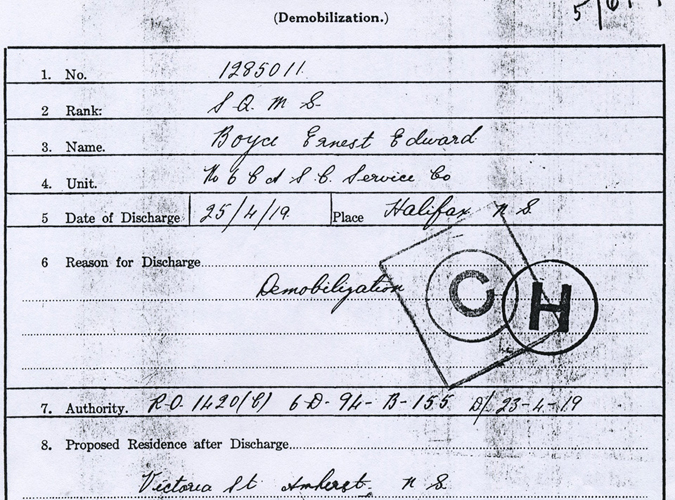 (Demobilization.)
1. No. 1285011
2 Rank: S. Q. M. S.
3. Name. Boyce Ernest Edward
4. Unit. No 6 C A S. C. Service Co
5 Date of Discharge 25/4/19 Place Halifax N. S.
6 Reason for Discharge
Demobilization
C H
7. Authority. R.O. 1420(C) 6-D-94-B-155 D/ 23-4-19
8. Proposed Residence after Discharge
Victoria St Amherst. N S